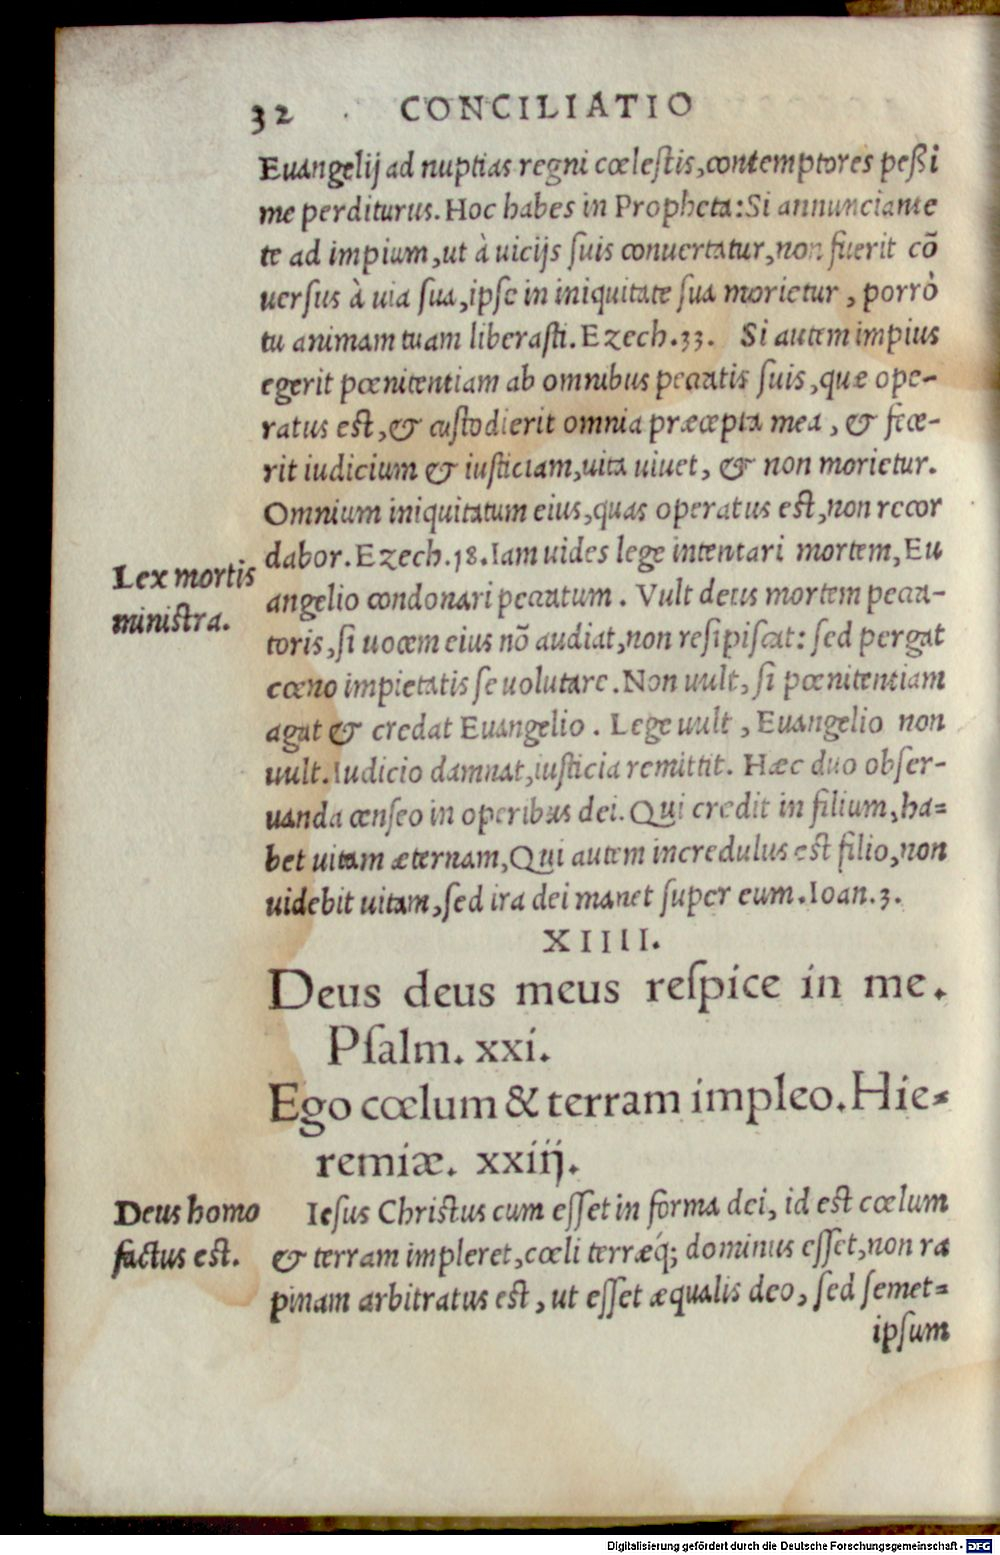 32 CONCILIATIO
Euangelij ad nuptias regni cœlestis, contemptores peßi
me perditurus. Hoc habes in Propheta: Si annunciante
te ad impium, ut à uicijs suis conuertatur, non fuerit cõ
uersus à uia sua, ipse in iniquitate sua morietur, porrò
tu animam tuam liberasti. Ezech. 33. Si autem impius
egerit pœnitentiam ab omnibus peccatis suis, quæ ope-
ratus est, & custodierit omnia præcepta mea, & fece-
rit iudicium & iusticiam, uita uiuet, & non morietur.
Omnium iniquitatum eius, quas operatus est, non recor
dabor. Ezech. 18. Iam uides lege intentari mortem, Eu
Lex mortis
ministra.
angelio condonari peccatum. Vult deus mortem pecca-
toris, si uocem eius nõ audiat, non resipiscat: sed pergat
cœno impietatis se uolutare. Non uult, si pœnitentiam
agat & credat Euangelio. Lege uult, Euangelio non
uult. Iudicio damnat, iusticia remittit. Hæc duo obser-
uanda censeo in operibus dei. Qui credit in filium, ha=
bet uitam æternam, Qui autem incredulus est filio, non
uidebit uitam, sed ira dei manet super eum. Ioan. 3.
XIIII.
Deus deus meus respice in me.
Psalm. xxi.
Ego cœlum & terram impleo. Hie=
remiæ. xxiij.
Deus homo
factus est.
Iesus Christus cum esset in forma dei, id est cœlum
& terram impleret, cœli terræq́; dominus esset, non ra
pinam arbitratus est, ut esset æqualis deo, sed semet=
ipsum
Digitalisierung gefördert durch die Deutsche Forschungsgemeinschaft - DFG